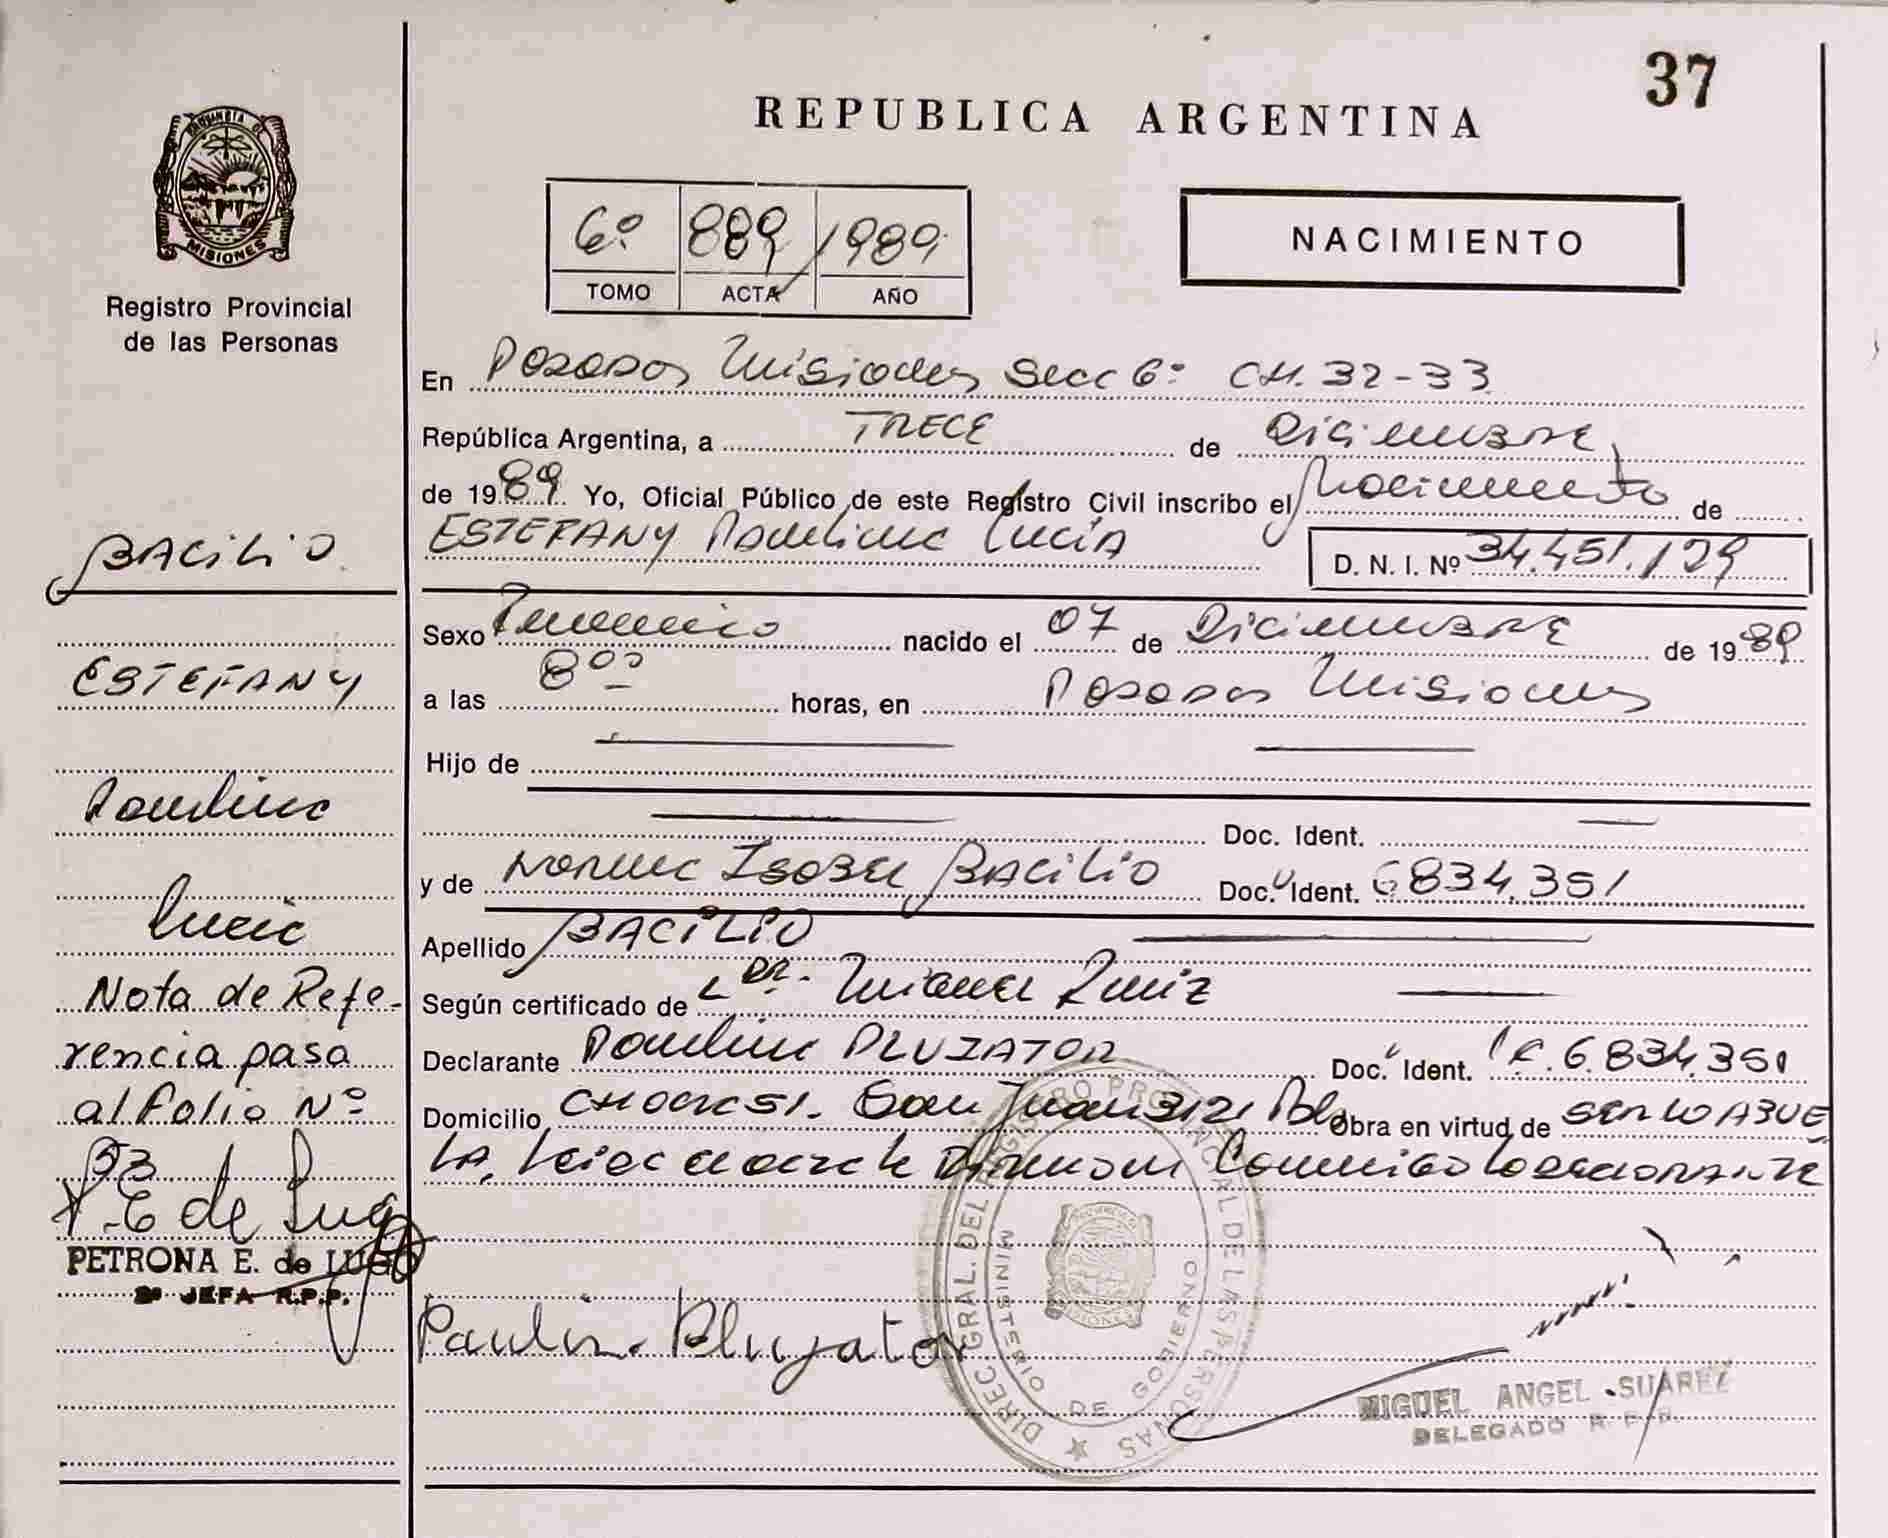 37
REPUBLICA ARGENTINA
PROVINCIA DE
MISIONES
Registro Provincial
de las Personas
6º 889 / 1989
TOMO ACTA AÑO
NACIMIENTO
En Posadas Misiones Secc 6º CH. 32-33
República Argentina, a TRECE de Diciembre
de 1989 Yo, Oficial Público de este Registro Civil inscribo el Nacimiento de
ESTEFANY Paulina Lucía D. N. I. Nº 34.451.129
Sexo Femenino nacido el 07 de Diciembre de 1989
a las 8ºº horas, en Posadas Misiones
Hijo de
Doc. Ident.
y de Norma Isabel Bacilio Doc. Ident. 6834,351
Apellido BACILIO
Según certificado de Dr. Miguel Ruiz
Declarante Paulina PLUZATOR Doc. Ident. 6.834.351
Domicilio San Juan Obra en virtud de SER LO ABUE
LA,
Paulin. Pluyator
BACILIO
ESTEFANY
Paulina
Lucia
Nota de Refe-
rencia pasa
al folio Nº
53
P. E de Lugo
PETRONA E. de LUGO
JEFA R.P.P.
DIREC. GRAL. DEL REGISTRO PROVINCIAL DE LAS PERSONAS
MINISTERIO DE GOBIERNO
MISIONES
MIGUEL ANGEL SUAREZ
DELEGADO R. P. P.